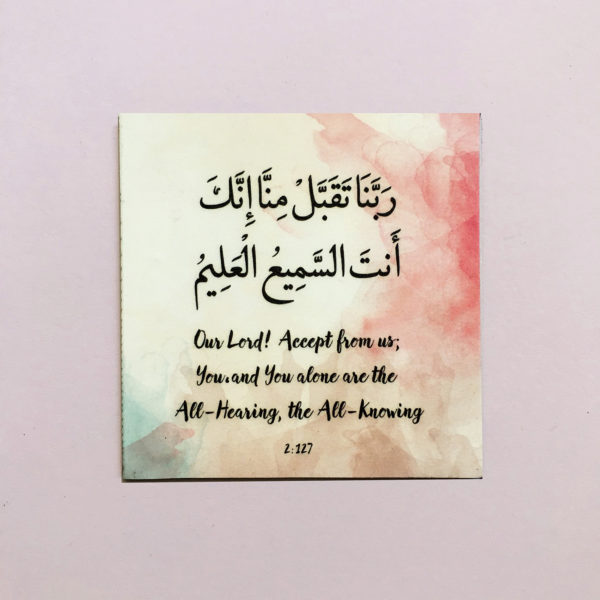 رَبَّنَا تَقَبَّلْ مِنَّا إِنَّكَ
أَنتَ السَّمِيعُ الْعَلِيمُ
Our Lord! Accept from us;
You.and You alone are the
All-Hearing, the All-Knowing
2:127